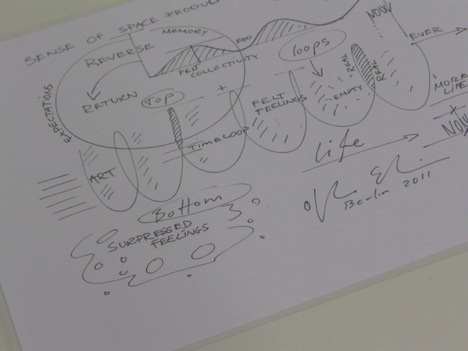 SENSE OF SPACE PRODUC
MEMORY
NOW
REVERSE
loops
EVER
FELT
COLLECTIVITY
REAL
EXPECTATIONS
RETURN
TOP
+
-
FELT
FEELINGS
EMPTY
MORE
LIFE
ART
TIMELOOP
Life
+
Bottom
Berlin 2011
SURPRESSED
FEELINGS